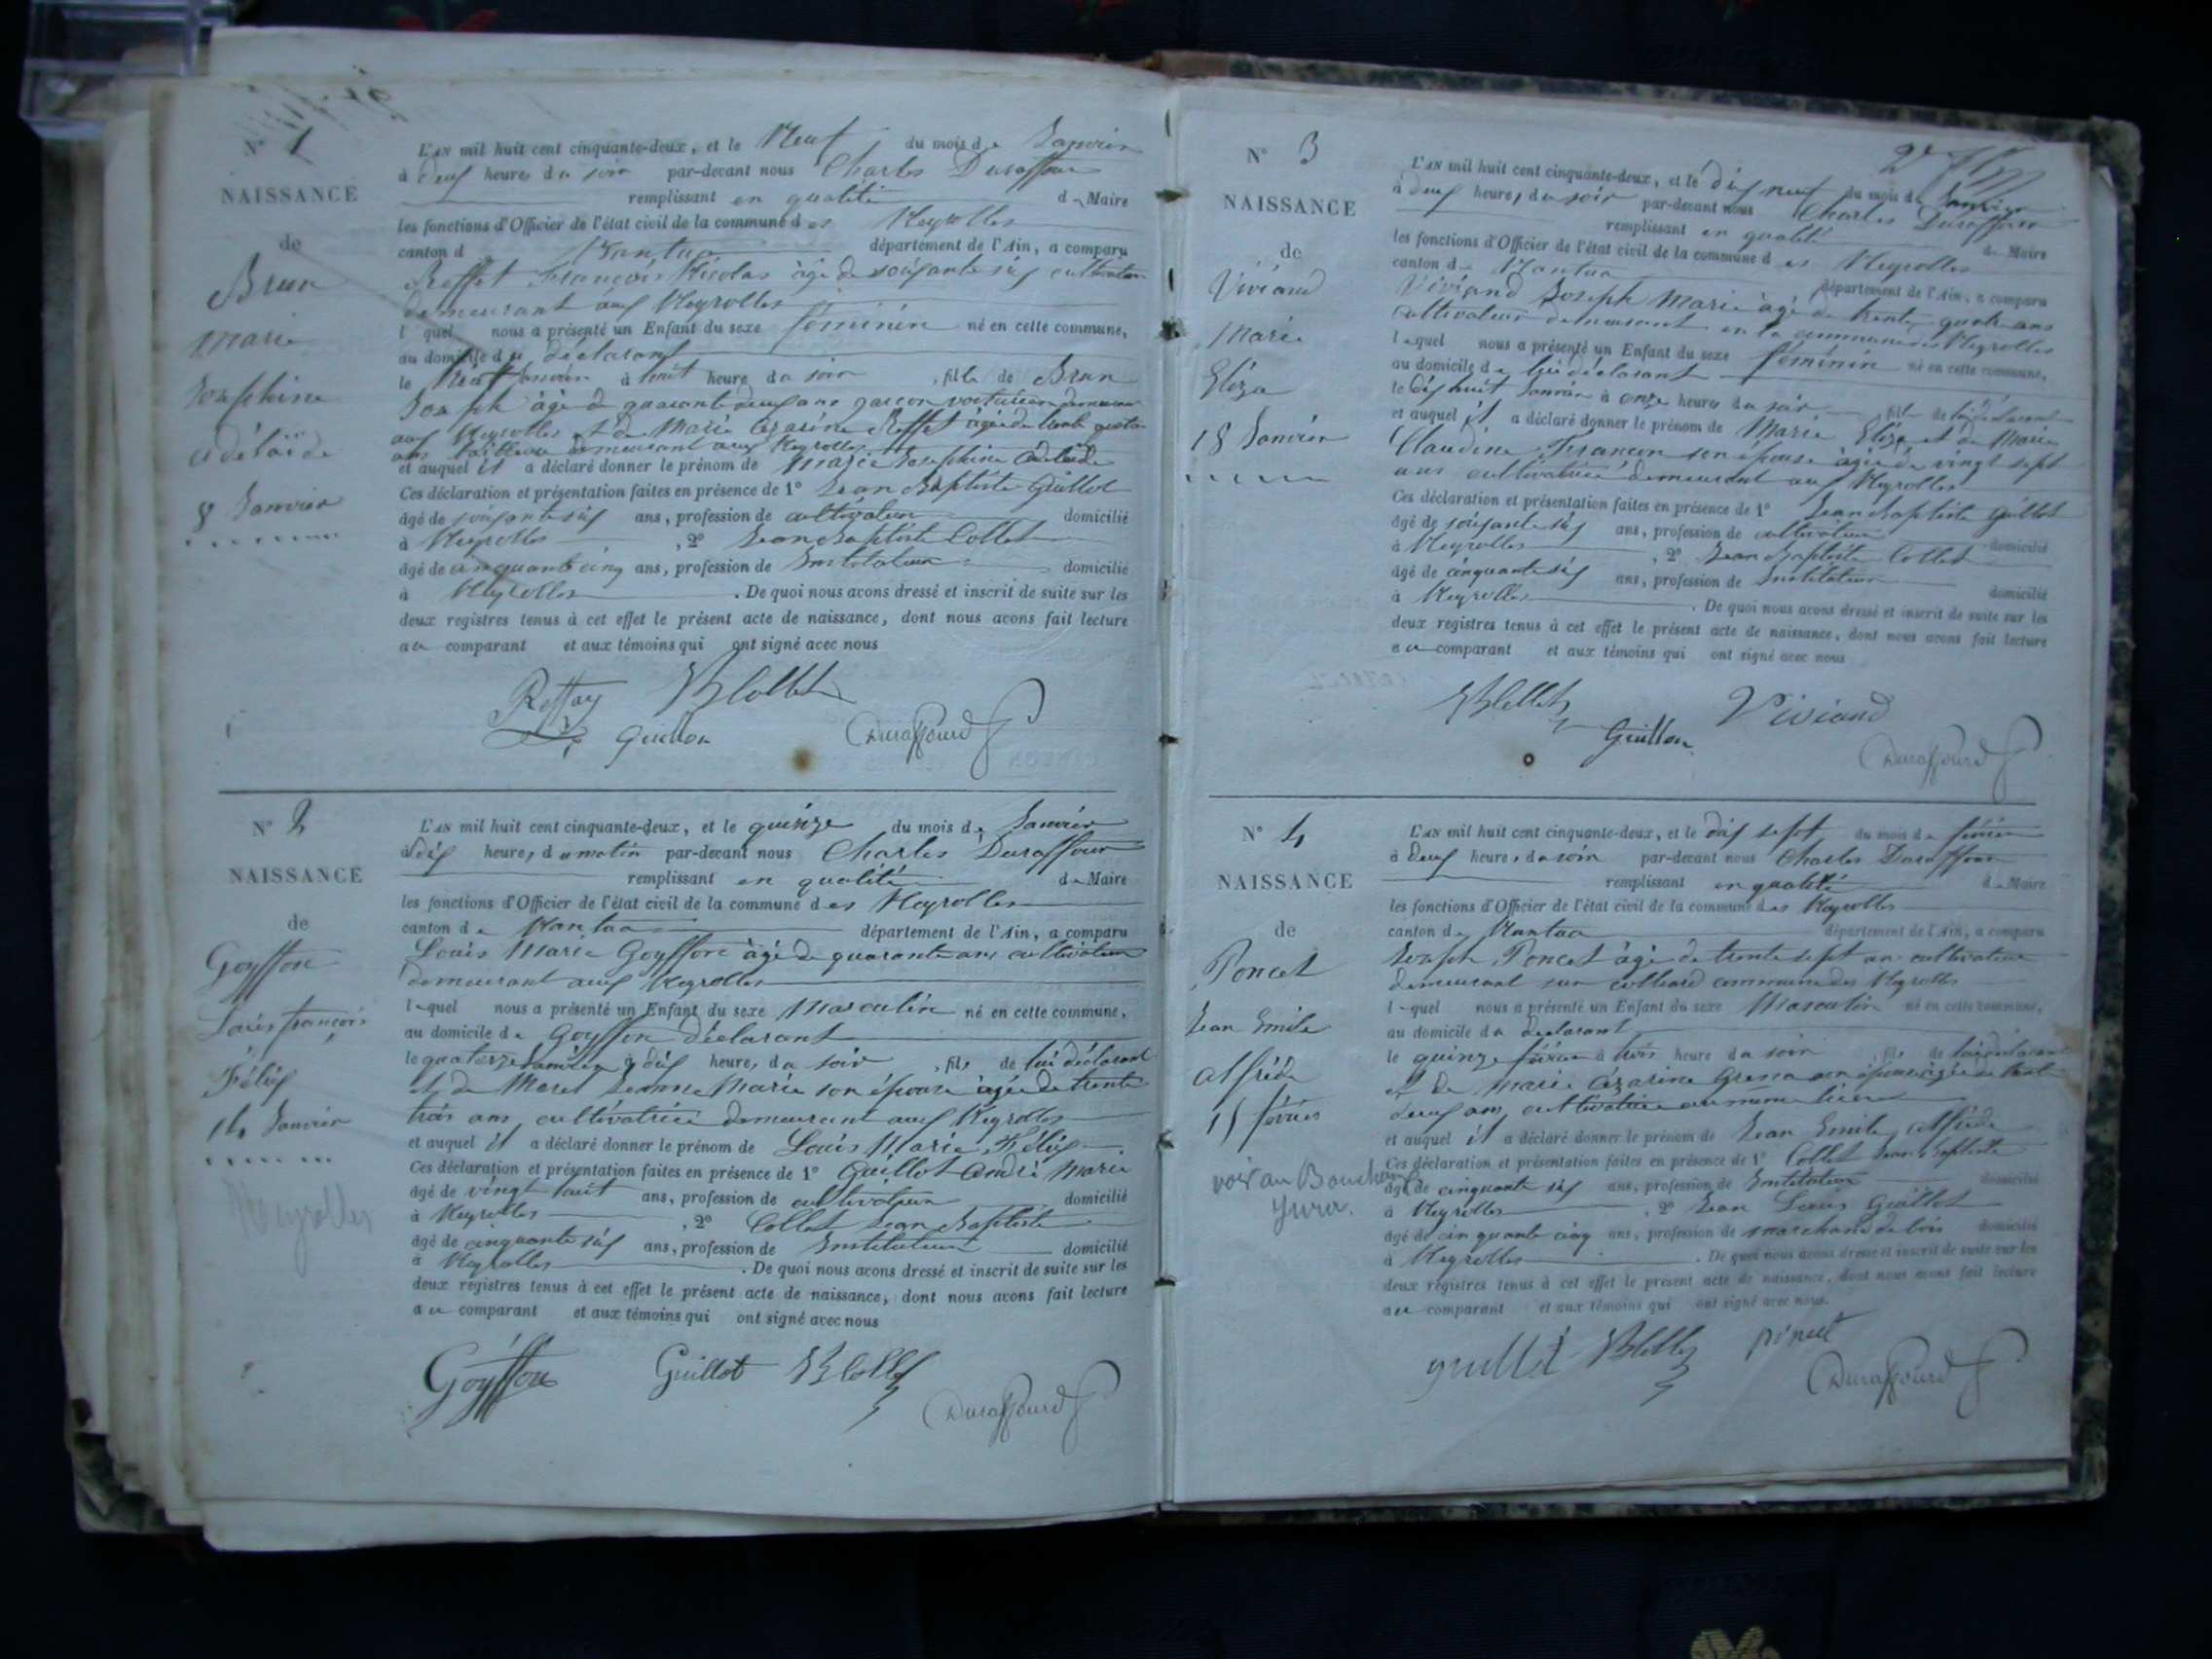 N° 1
NAISSANCE
de
Brun
Marie
Josephine
adélaïde
8 Janvier
L'AN mil huit cent cinquante-deux, et le Neuf du mois de Janvier
à deux heures du soir par-devant nous Charles Duraffour
remplissant en qualité de Maire
les fonctions d'Officier de l'état civil de la commune des Neyrolles
canton d Nantua département de l'Ain, a comparu
Reffet François Nicolas âgé de soixante six cultivateur
demeurant aux Neyrolles
l quel nous a présenté un Enfant du sexe féminin né en cette commune,
au domicile du déclarant
le Janvier à huit heure du soir , fille de Brun
Joseph âgé de quarante deux ans garçon voiturier demeurant
aux Neyrolles et de Marie Cézarine Reffet âgée de trente quatre
ans tailleuse demeurant aux Neyrolles
et auquel il a déclaré donner le prénom de Marie Josephine Adelaide
Ces déclaration et présentation faites en présence de 1° Jean Baptiste Guillot
âgé de soixante six ans, profession de cultivateur domicilié
à Neyrolles , 2° Jean Baptiste Collet
âgé de cinquante cinq ans, profession de Instituteur domicilié
à Neyrolles . De quoi nous avons dressé et inscrit de suite sur les
deux registres tenus à cet effet le présent acte de naissance, dont nous avons fait lecture
au comparant et aux témoins qui ont signé avec nous
JB Collet
Guillon Duraffourd
N° 2
NAISSANCE
de
Goyffon
Louis françois
Félix
14 Janvier
Neyrolles
L'AN mil huit cent cinquante-deux, et le quinze du mois de Janvier
à dix heures du matin par-devant nous Charles Duraffour
remplissant en qualité de Maire
les fonctions d'Officier de l'état civil de la commune des Neyrolles
canton de Nantua département de l'Ain, a comparu
Louis Marie Goyffon âgé de quarante ans cultivateur
demeurant aux Neyrolles
lequel nous a présenté un Enfant du sexe Masculin né en cette commune,
au domicile de Goyffon déclarant
le quatorze Janvier à dix heures du soir , fils de lui déclarant
et de Morel Jeanne Marie son épouse âgée de trente
trois ans, cultivatrice demeurant aux Neyrolles
et auquel il a déclaré donner le prénom de Louis Marie Félix
Ces déclaration et présentation faites en présence de 1° Guillot André Marie
âgé de vingt huit ans, profession de cultivateur domicilié
à Neyrolles , 2° Collet Jean Baptiste
âgé de cinquante six ans, profession de Instituteur domicilié
à Neyrolles . De quoi nous avons dressé et inscrit de suite sur les
deux registres tenus à cet effet le présent acte de naissance, dont nous avons fait lecture
au comparant et aux témoins qui ont signé avec nous
Goyffon Guillot JB Collet
Duraffourd
N° 3
NAISSANCE
de
Viviand
Marie
Eliza
18 Janvier
L'AN mil huit cent cinquante-deux, et le dix neuf du mois de Janvier
à deux heures du soir par-devant nous Charles Duraffour
remplissant en qualité de Maire
les fonctions d'Officier de l'état civil de la commune des Neyrolles
canton de Nantua département de l'Ain, a comparu
Viviand Joseph Marie âgé de trente quatre ans
cultivateur demeurant en la commune des Neyrolles
lequel nous a présenté un Enfant du sexe féminin né en cette commune,
au domicile de lui déclarant
le dix huit Janvier à onze heures du soir , fille de lui déclarant
et auquel il a déclaré donner le prénom de Marie Eliza et de Marie
Claudine son épouse âgée de vingt sept
ans cultivatrice demeurant aux Neyrolles
Ces déclaration et présentation faites en présence de 1° Jean Baptiste Guillot
âgé de soixante six ans, profession de cultivateur domicilié
à Neyrolles , 2° Jean Baptiste Collet
âgé de cinquante six ans, profession de Instituteur domicilié
à Neyrolles . De quoi nous avons dressé et inscrit de suite sur les
deux registres tenus à cet effet le présent acte de naissance, dont nous avons fait lecture
au comparant et aux témoins qui ont signé avec nous
JB Collet Viviand
Guillon Duraffourd
N° 4
NAISSANCE
de
Poncet
Jean Emile
Alfréde
15 février
voir au Bouchoux
Jura.
L'AN mil huit cent cinquante-deux, et le dix sept du mois de février
à deux heures du soir par-devant nous Charles Duraffour
remplissant en qualité de Maire
les fonctions d'Officier de l'état civil de la commune des Neyrolles
canton de Nantua département de l'Ain, a comparu
Joseph Poncet âgé de trente sept ans cultivateur
demeurant sur commune des Neyrolles
lequel nous a présenté un Enfant du sexe Masculin né en cette commune,
au domicile du déclarant
le quinze février à trois heure du soir , fils de lui déclarant
et de Marie Cézarine son épouse âgée de trente
deux ans, cultivatrice au même lieu
et auquel il a déclaré donner le prénom de Jean Emile Alfréde
Ces déclaration et présentation faites en présence de 1° Collet Jean Baptiste
âgé de cinquante six ans, profession de Instituteur domicilié
à Neyrolles , 2° Jean Louis Guillot
âgé de cinquante cinq ans, profession de marchand de bois domicilié
à Neyrolles . De quoi nous avons dressé et inscrit de suite sur les
deux registres tenus à cet effet le présent acte de naissance, dont nous avons fait lecture
au comparant et aux témoins qui ont signé avec nous.
guillot JB Collet
Duraffourd